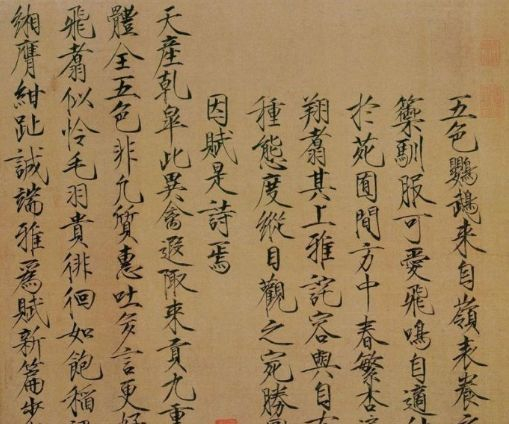 五色鸚鵡來自嶺表養
籞馴服可愛飛鳴自適
於苑囿間方中春繁杏
翔翥其上雅詫容與自
種態度縱目觀之宛勝
因賦是詩焉
天產乾皋此異禽遐陬來貢九重
體全五色非凡質惠吐多言更好
飛翥似怜毛羽貴徘徊如飽稻
緗膺紺趾誠端雅爲賦新篇步